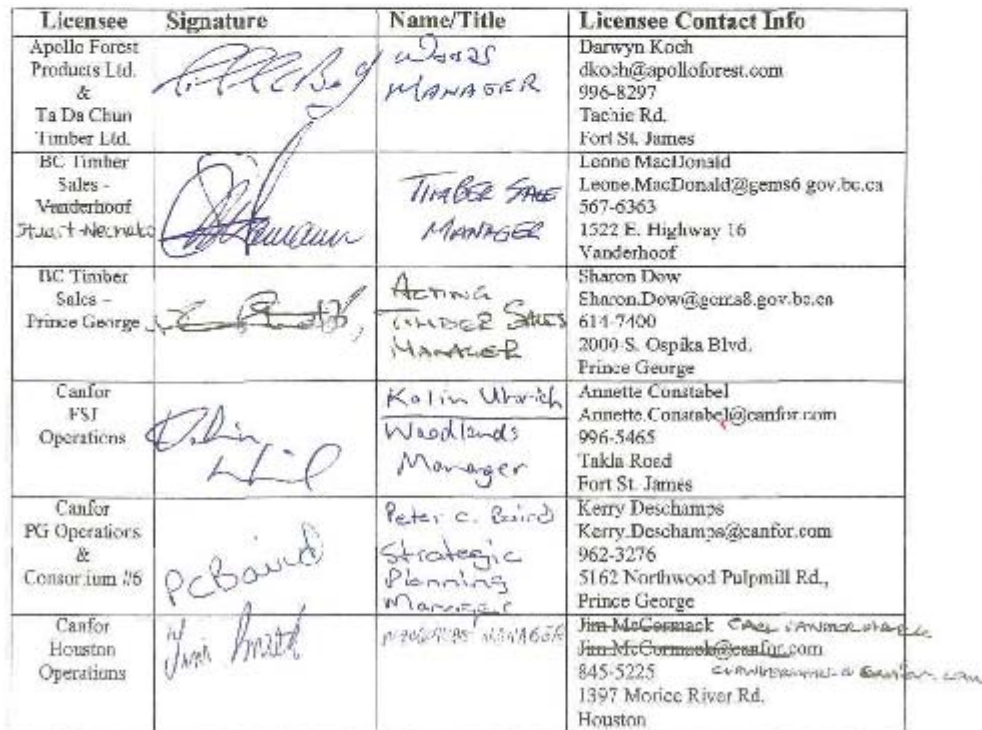 Licensee Signature Name/Title Licensee Contact Info
Apollo Forest
Products Ltd.
&
Ta Da Chun
Timber Ltd.
Woods
MANAGER
Darwyn Koch
dkoch@apolloforest.com
996-8297
Tachie Rd.
Fort St. James
BC Timber
Sales -
Vanderhoof
Stuart-Nechako
TIMBER SALE
MANAGER
Leone MacDonald
Leone.MacDonald@gems6.gov.bc.ca
567-6363
1522 E. Highway 16
Vanderhoof
BC Timber
Sales –
Prince George
ACTING
TIMBER SALES
MANAGER
Sharon Dow
Sharon.Dow@gems8.gov.bc.ca
614-7400
2000 S. Ospika Blvd.
Prince George
Canfor
FSJ
Operations
Kalin Uhrich
Woodlands
Manager
Annette Constabel
Annette.Constabel@canfor.com
996-5465
Takla Road
Fort St. James
Canfor
PG Operations
&
Consortium #6
PCBaird
Peter C. Baird
Strategic
Planning
Manager
Kerry Deschamps
Kerry.Deschamps@canfor.com
962-3276
5162 Northwood Pulpmill Rd.,
Prince George
Canfor
Houston
Operations
Jim Smith
MANAGER
Jim McCormack
Jim.McCormack@canfor.com
845-5225
1397 Morice River Rd.
Houston